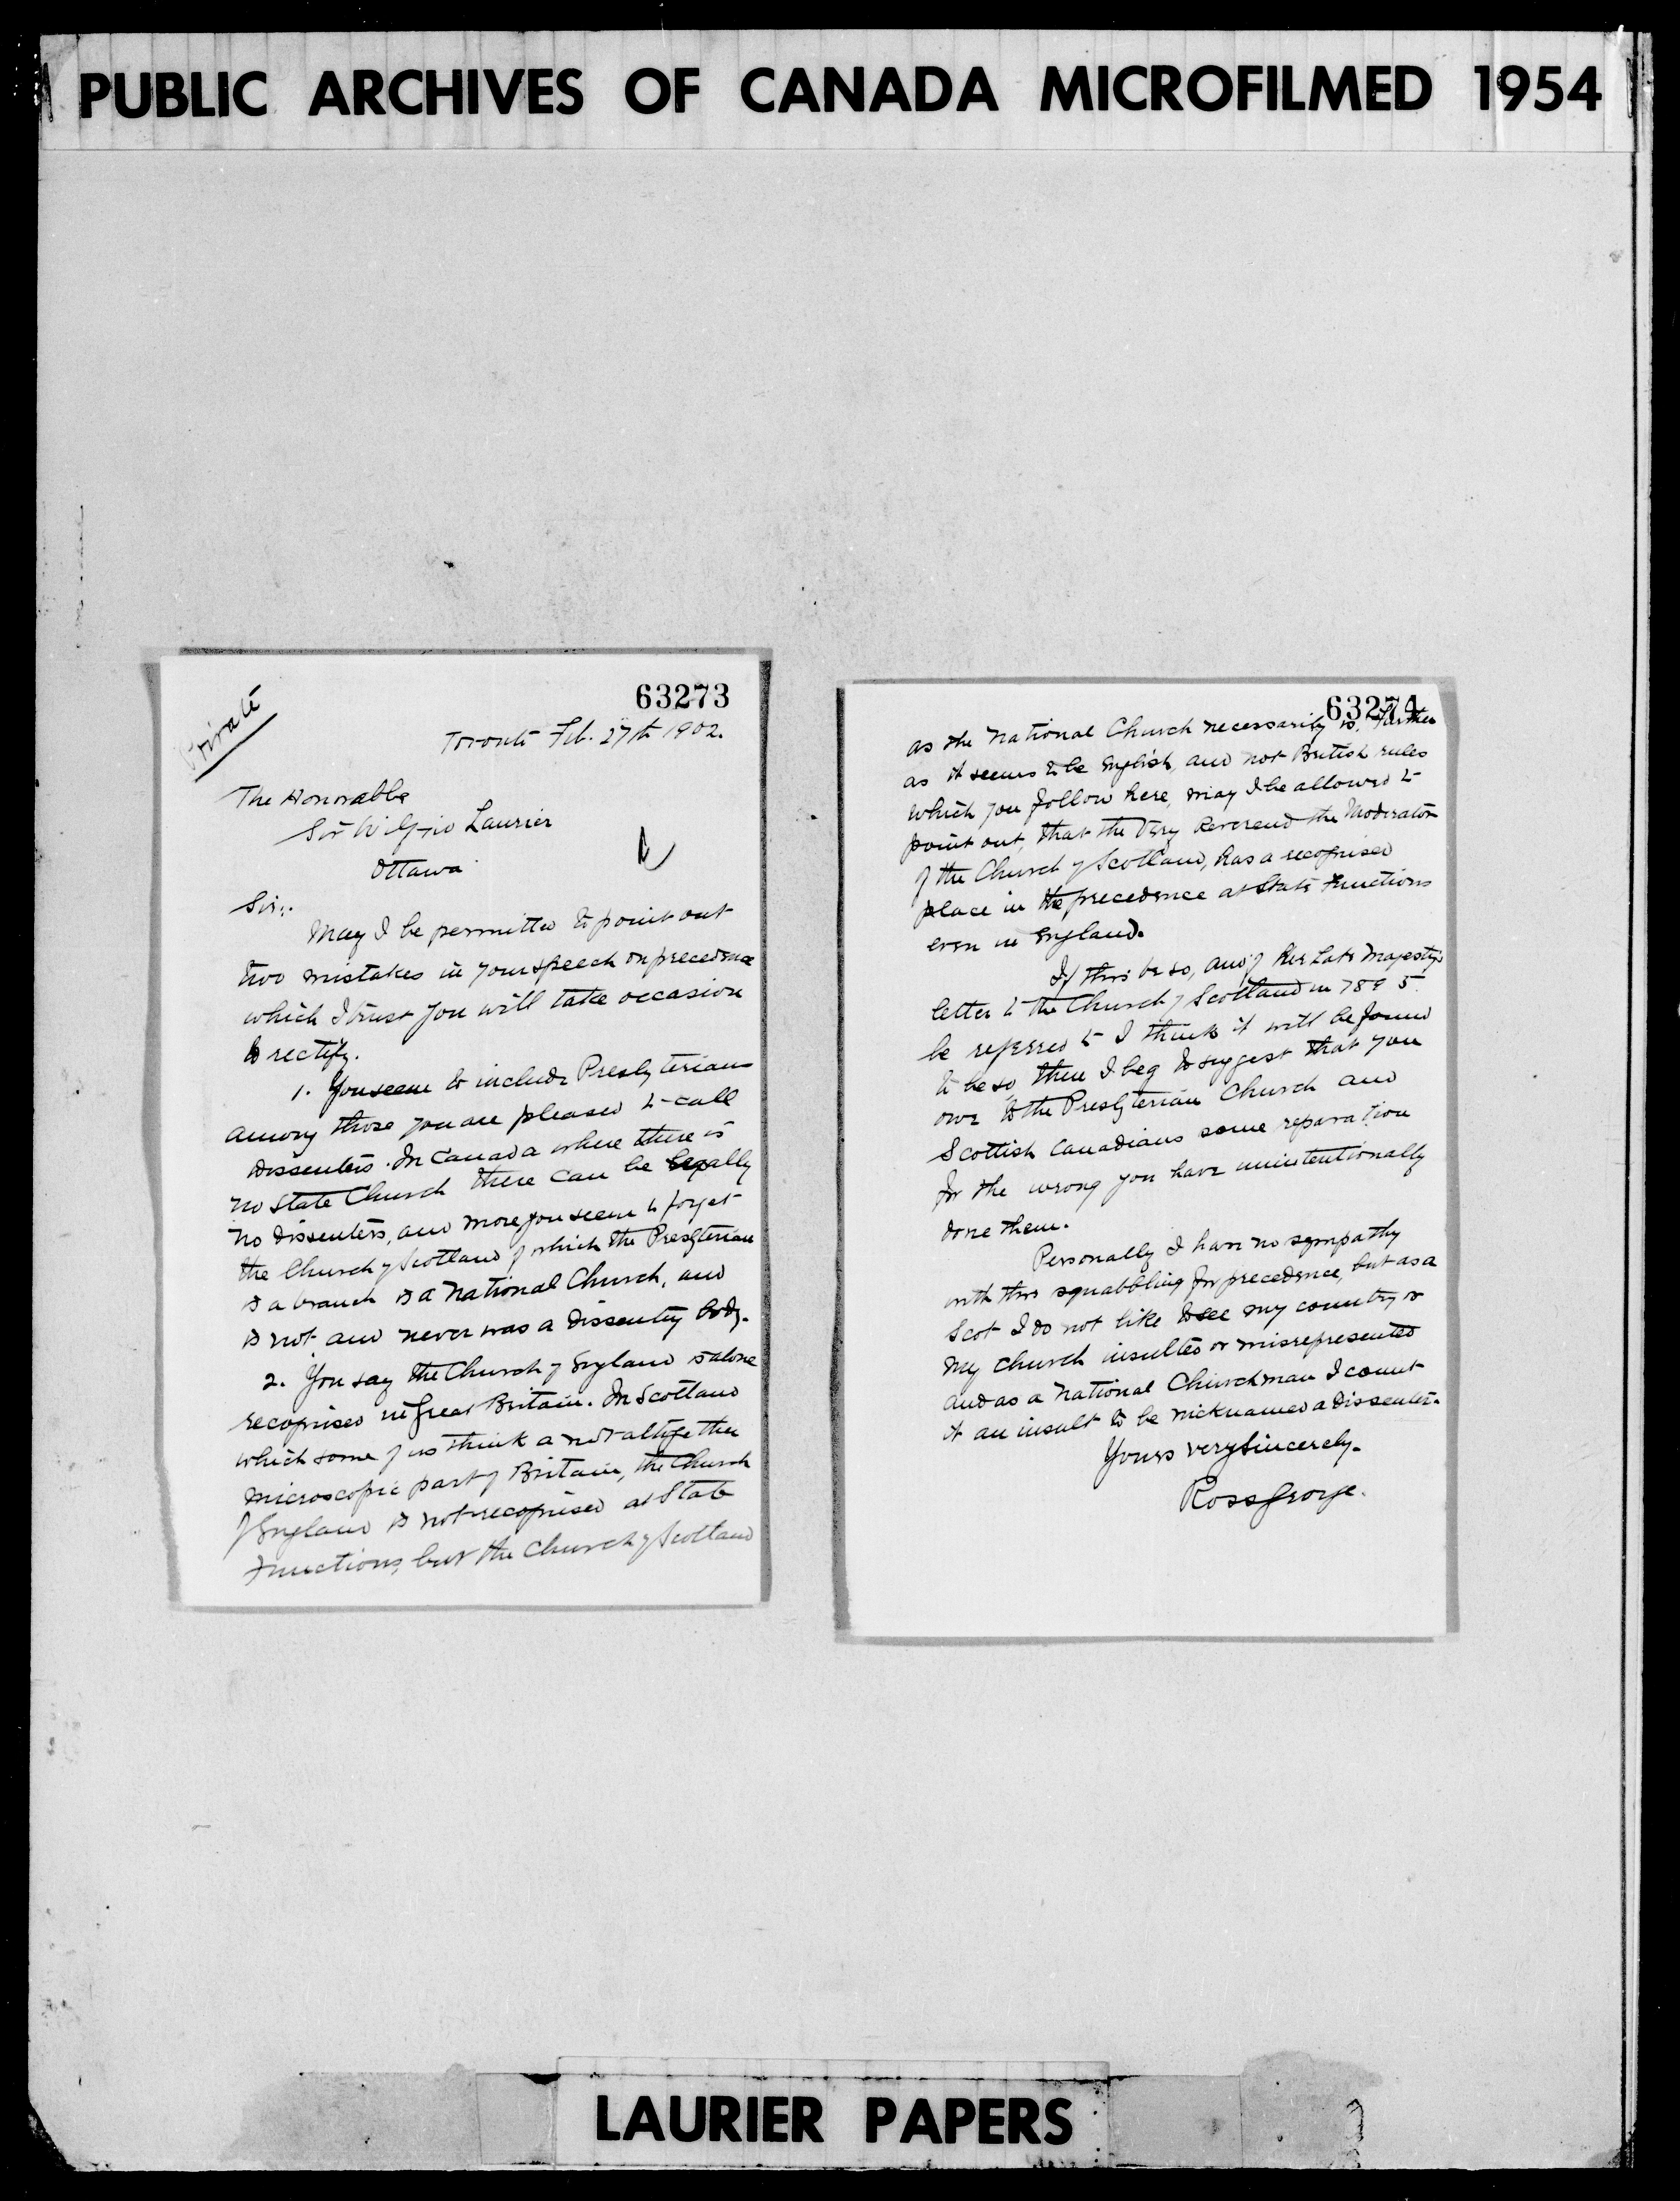 PUBLIC ARCHIVES OF CANADA MICROFILMED 1954
63273
Private
Toronto Feb. 27th 1902.
The Honorable
Sir Wilfrid Laurier
Ottawa
Sir:.
May I be permitted to point out
two mistakes in your speech on precedence
which I trust you will take occasion
to rectify.
1. You seem to include Presbyterians
among those you are pleased to call
Dissenters. In Canada where there is
no State Church there can be legally
no dissenters, and more you seem to forget
the Church of Scotland of which the Presbyterian
is a branch is a National Church, and
is not and never was a dissenting body.
2. You say the Church of England is alone
recognised in Great Britain. In Scotland
which some of us think a not altogether
microscopic part of Britain, the Church
of England is not recognised at State
Functions, but the Church of Scotland
63274
as the National Church necessarily is. Further
as it seems to be English, and not British rules
which you follow here, may I be allowed to
point out, that the Very Reverend the Moderator
of the Church of Scotland, has a recognised
place in the precedence at State Functions
even in England.
If this be so, and if Her Late Majesty's
letter to the Church of Scotland in 1895
be referred to I think it will be found
to be so, then I beg to suggest that you
owe to the Presbyterian Church and
Scottish Canadians some reparation
for the wrong you have unintentionally
done them.
Personally I have no sympathy
with this squabbling for precedence, but as a
Scot I do not like to see my country or
my church insulted or misrepresented
and as a National Churchman I count
it an insult to be nicknamed a dissenter.
Yours very sincerely.
Ross George.
LAURIER PAPERS